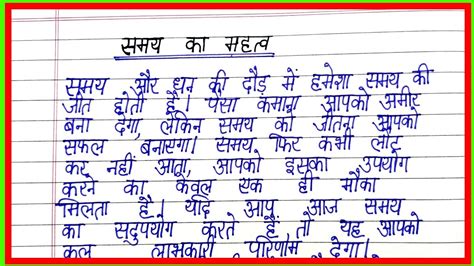 समय का महत्व
समय और धन की दौड़ में हमेशा समय की
जीत होती है। पैसा कमाना आपको अमीर
बना देगा, लेकिन समय को जीतना आपको
सफल बनाएगा। समय फिर कभी लौट
कर नहीं आता, आपको इसका उपयोग
करने का केवल एक ही मौका
मिलता है। यदि आप आज समय
का सदुपयोग करते हैं, तो यह आपको
कल लाभकारी परिणाम देगा।